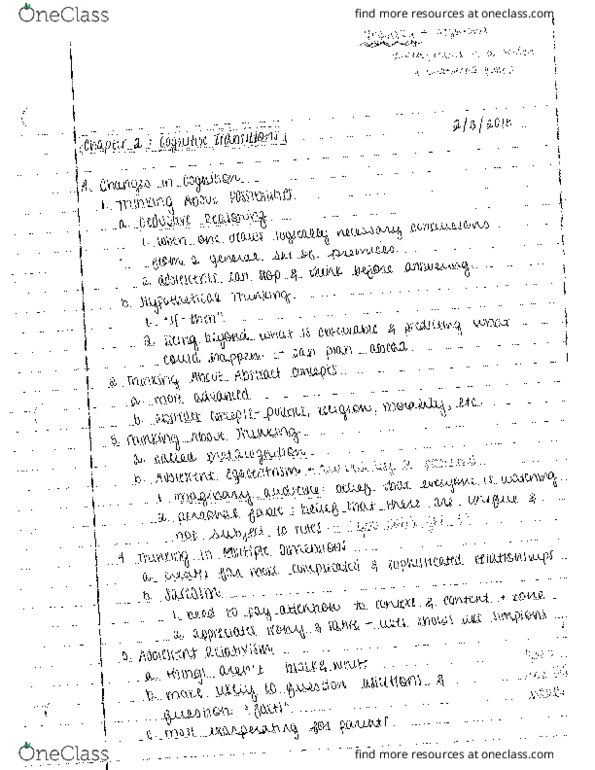 OneClass
find more resources at oneclass.com
2/3/201
Chapter 2: Cognitive Transitions
A. Changes in Cognition
1. Thinking About Possibilities
a. Deductive Reasoning
1. when one draws logically necessary conclusions
from a general set of premises
2. adolescents can stop & think before answering
b. Hypothetical Thinking
1. "if-then"
2. going beyond what is observable & predicting what
could happen - can plan ahead
2. Thinking About Abstract Concepts
a. more advanced
b. abstract concepts - politics, religion, morality, etc.
3. Thinking About Thinking
a. called metacognition
b. Adolescent Egocentrism -
1. imaginary audience: belief that everyone is watching
2. personal fable: belief that there are unique &
not subject to rules -
4. Thinking in Multiple Dimensions
a. creates for more complicated & sophisticated relationships
b. Sarcasm
1. need to pay attention to context & content + tone
2. appreciates irony & satire - likes shows like simpsons
5. Adolescent Relativism
a. things aren't black & white
b. more likely to question &
question "facts"
c. most exasperating for parents
OneClass
find more resources at oneclass.com